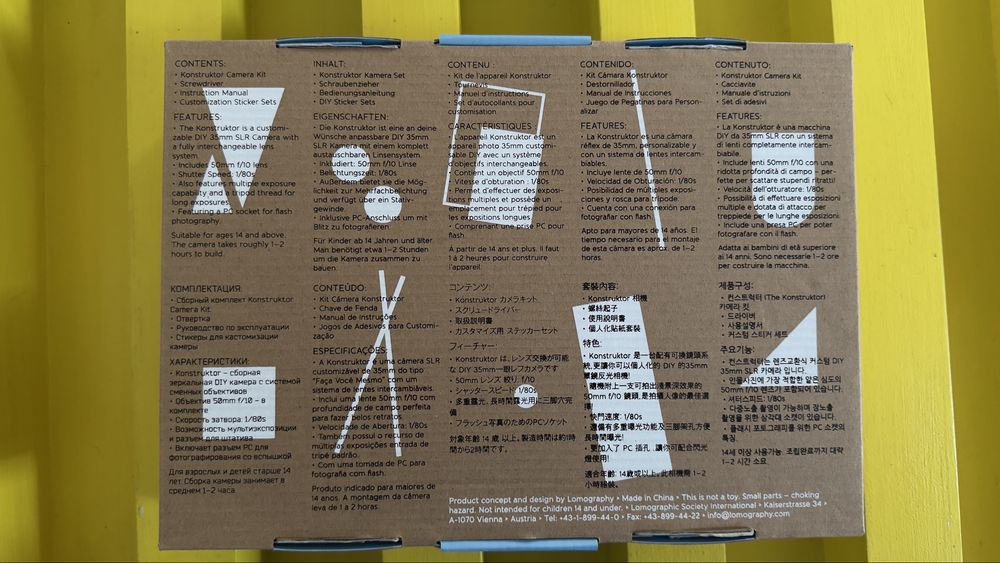 CONTENTS:
• Konstruktor Camera Kit
• Screwdriver
• Instruction Manual
• Customization Sticker Sets
FEATURES:
• The Konstruktor is a customi-
zable DIY 35mm SLR Camera with
a fully interchangeable lens
system.
• Includes 50mm f/10 lens
• Shutter Speed: 1/80s
• Also features multiple exposure
capability and a tripod thread for
long exposures.
• Featuring a PC socket for flash
photography.
Suitable for ages 14 and above.
The camera takes roughly 1–2
hours to build.
INHALT:
• Konstruktor Kamera Set
• Schraubenzieher
• Bedienungsanleitung
• DIY Sticker Sets
EIGENSCHAFTEN:
• Die Konstruktor ist eine an deine
Wünsche anpassbare DIY 35mm
SLR Kamera mit einem komplett
austauschbaren Linsensystem.
• Inkludiert: 50mm f/10 Linse
• Belichtungszeit: 1/80s
• Außerdem bietet sie die Mög-
lichkeit zur Mehrfachbelichtung
und verfügt über ein Stativ-
gewinde.
• Inklusive PC-Anschluss um mit
Blitz zu fotografieren.
Für Kinder ab 14 Jahren und älter.
Man benötigt etwa 1–2 Stunden
um die Kamera zusammen zu
bauen.
CONTENU :
• Kit de l'appareil Konstruktor
• Tournevis
• Manuel d'instructions
• Set d'autocollants pour
customisation
CARACTÉRISTIQUES :
• L'appareil Konstruktor est un
appareil photo 35mm customi-
sable DIY avec un système
d'objectifs interchangeables.
• Contient un objectif 50mm f/10
• Vitesse d'obturation : 1/80s
• Permet d'effectuer des exposi-
tions multiples et possède un
emplacement pour trépied pour
les expositions longues.
• Comprenant une prise PC pour
flash.
À partir de 14 ans et plus. Il faut
1 à 2 heures pour construire
l'appareil.
CONTENIDO:
• Kit Cámara Konstruktor
• Destornillador
• Manual de Instrucciones
• Juego de Pegatinas para Person-
alizar
FEATURES:
• La Konstruktor es una cámara
réflex de 35mm, personalizable y
con un sistema de lentes intercam-
biables.
• Incluye lente de 50mm f/10
• Velocidad de Obturación: 1/80s
• Posibilidad de múltiples exposi-
ciones y rosca para trípode.
• Cuenta con una conexión para
fotografiar con flash.
Apto para mayores de 14 años. El
tiempo necesario para el montaje
de esta cámara es aprox. de 1–2
horas.
CONTENUTO:
• Konstruktor Camera Kit
• Cacciavite
• Manuale d'istruzioni
• Set di adesivi
FEATURES:
• La Konstruktor è una macchina
DIY da 35mm SLR con un sistema
di lenti completamente intercam-
biabile.
• Include lenti 50mm f/10 con una
ridotta profondità di campo – per-
fette per scattare stupendi ritratti!
• Velocità dell'otturatore: 1/80s
• Possibilità di effettuare esposizioni
multiple e dotata di attacco per
treppiede per le lunghe esposizioni.
• Include una presa PC per poter
fotografare con il flash.
Adatta ai bambini di età superiore
ai 14 anni. Sono necessarie 1–2 ore
per costruire la macchina.
КОМПЛЕКТАЦИЯ:
• Сборный комплект Konstruktor
Camera Kit
• Отвертка
• Руководство по эксплуатации
• Стикеры для кастомизации
камеры
ХАРАКТЕРИСТИКИ:
• Konstruktor – сборная
зеркальная DIY камера с системой
сменных объективов
• Объектив 50mm f/10 – в
комплекте
• Скорость затвора: 1/80s
• Возможность мультиэкспозиции
и разъем для штатива
• Включает разъем PC для
фотографирования со вспышкой
Для взрослых и детей старше 14
лет. Сборка камеры занимает в
среднем 1–2 часа
CONTEÚDO:
• Kit Câmera Konstruktor
• Chave de Fenda
• Manual de Instruções
• Jogos de Adesivos para Customi-
zação
ESPECIFICAÇÕES:
• A Konstruktor é uma câmera SLR
customizável de 35mm do tipo
"Faça Você Mesmo" com um
sistema de lentes intercambiáveis.
• Inclui uma lente 50mm f/10 com
profundidade de campo perfeita
para fazer belos retratos.
• Velocidade de Abertura: 1/80s
• Também possui o recurso de
múltiplas exposições entrada de
tripé padrão.
• Com uma tomada de PC para
fotografia com flash.
Produto indicado para maiores de
14 anos. A montagem da câmera
leva de 1 a 2 horas.
コンテンツ:
• Konstruktor カメラキット
• スクリュードライバー
• 取扱説明書
• カスタマイズ用 ステッカーセット
フィーチャー:
• Konstruktor は、レンズ交換が可能
な DIY 35mm一眼レフカメラです
• 50mm レンズ 絞り f/10
• シャッタースピード 1/80s
• 多重露光、長時間露光用に三脚穴完
備
• フラッシュ写真のためのPCソケット
対象年齢 14 歳 以上。製造時間は約1時
間から2時間です。
套裝內容:
• Konstruktor 相機
• 螺絲起子
• 使用說明書
• 個人化貼紙套裝
特色:
• Konstruktor 是一台配有可換鏡頭系
統,更讓你可以個人化的 DIY 的35mm
單鏡反光相機!
• 隨機附上一支可拍出淺景深效果的
50mm f/10 鏡頭,是拍攝人像的最佳選
擇!
• 快門速度: 1/80s
• 還備有多重曝光功能及三腳架孔方便
長時間曝光!
• 更加入了 PC 插孔,讓你可配合閃光
燈使用!
適合年齡: 14歲或以上. 此相機需 1–2
小時組裝.
제품구성:
• 컨스트럭터 (The Konstruktor)
카메라 킷
• 드라이버
• 사용설명서
• 커스텀 스티커 세트
주요기능:
• 컨스트럭터는 렌즈교환식 커스텀 DIY
35mm SLR 카메라 입니다.
• 인물사진에 가장 적합한 얕은 심도의
50mm f/10 렌즈가 포함되어 있습니다.
• 셔터스피드: 1/80s
• 다중노출 촬영이 가능하며 장노출
촬영을 위한 삼각대 소켓이 있습니다.
• 플래시 포토그래피를 위한 PC 소켓의
특징.
14세 이상 사용가능. 조립완료까지 대략
1–2 시간 소요.
Product concept and design by Lomography • Made in China • This is not a toy. Small parts – choking
hazard. Not intended for children 14 and under. • Lomographic Society International • Kaiserstrasse 34 •
A-1070 Vienna • Austria • Tel: +43-1-899-44-0 • Fax: +43-899-44-22 • info@lomography.com